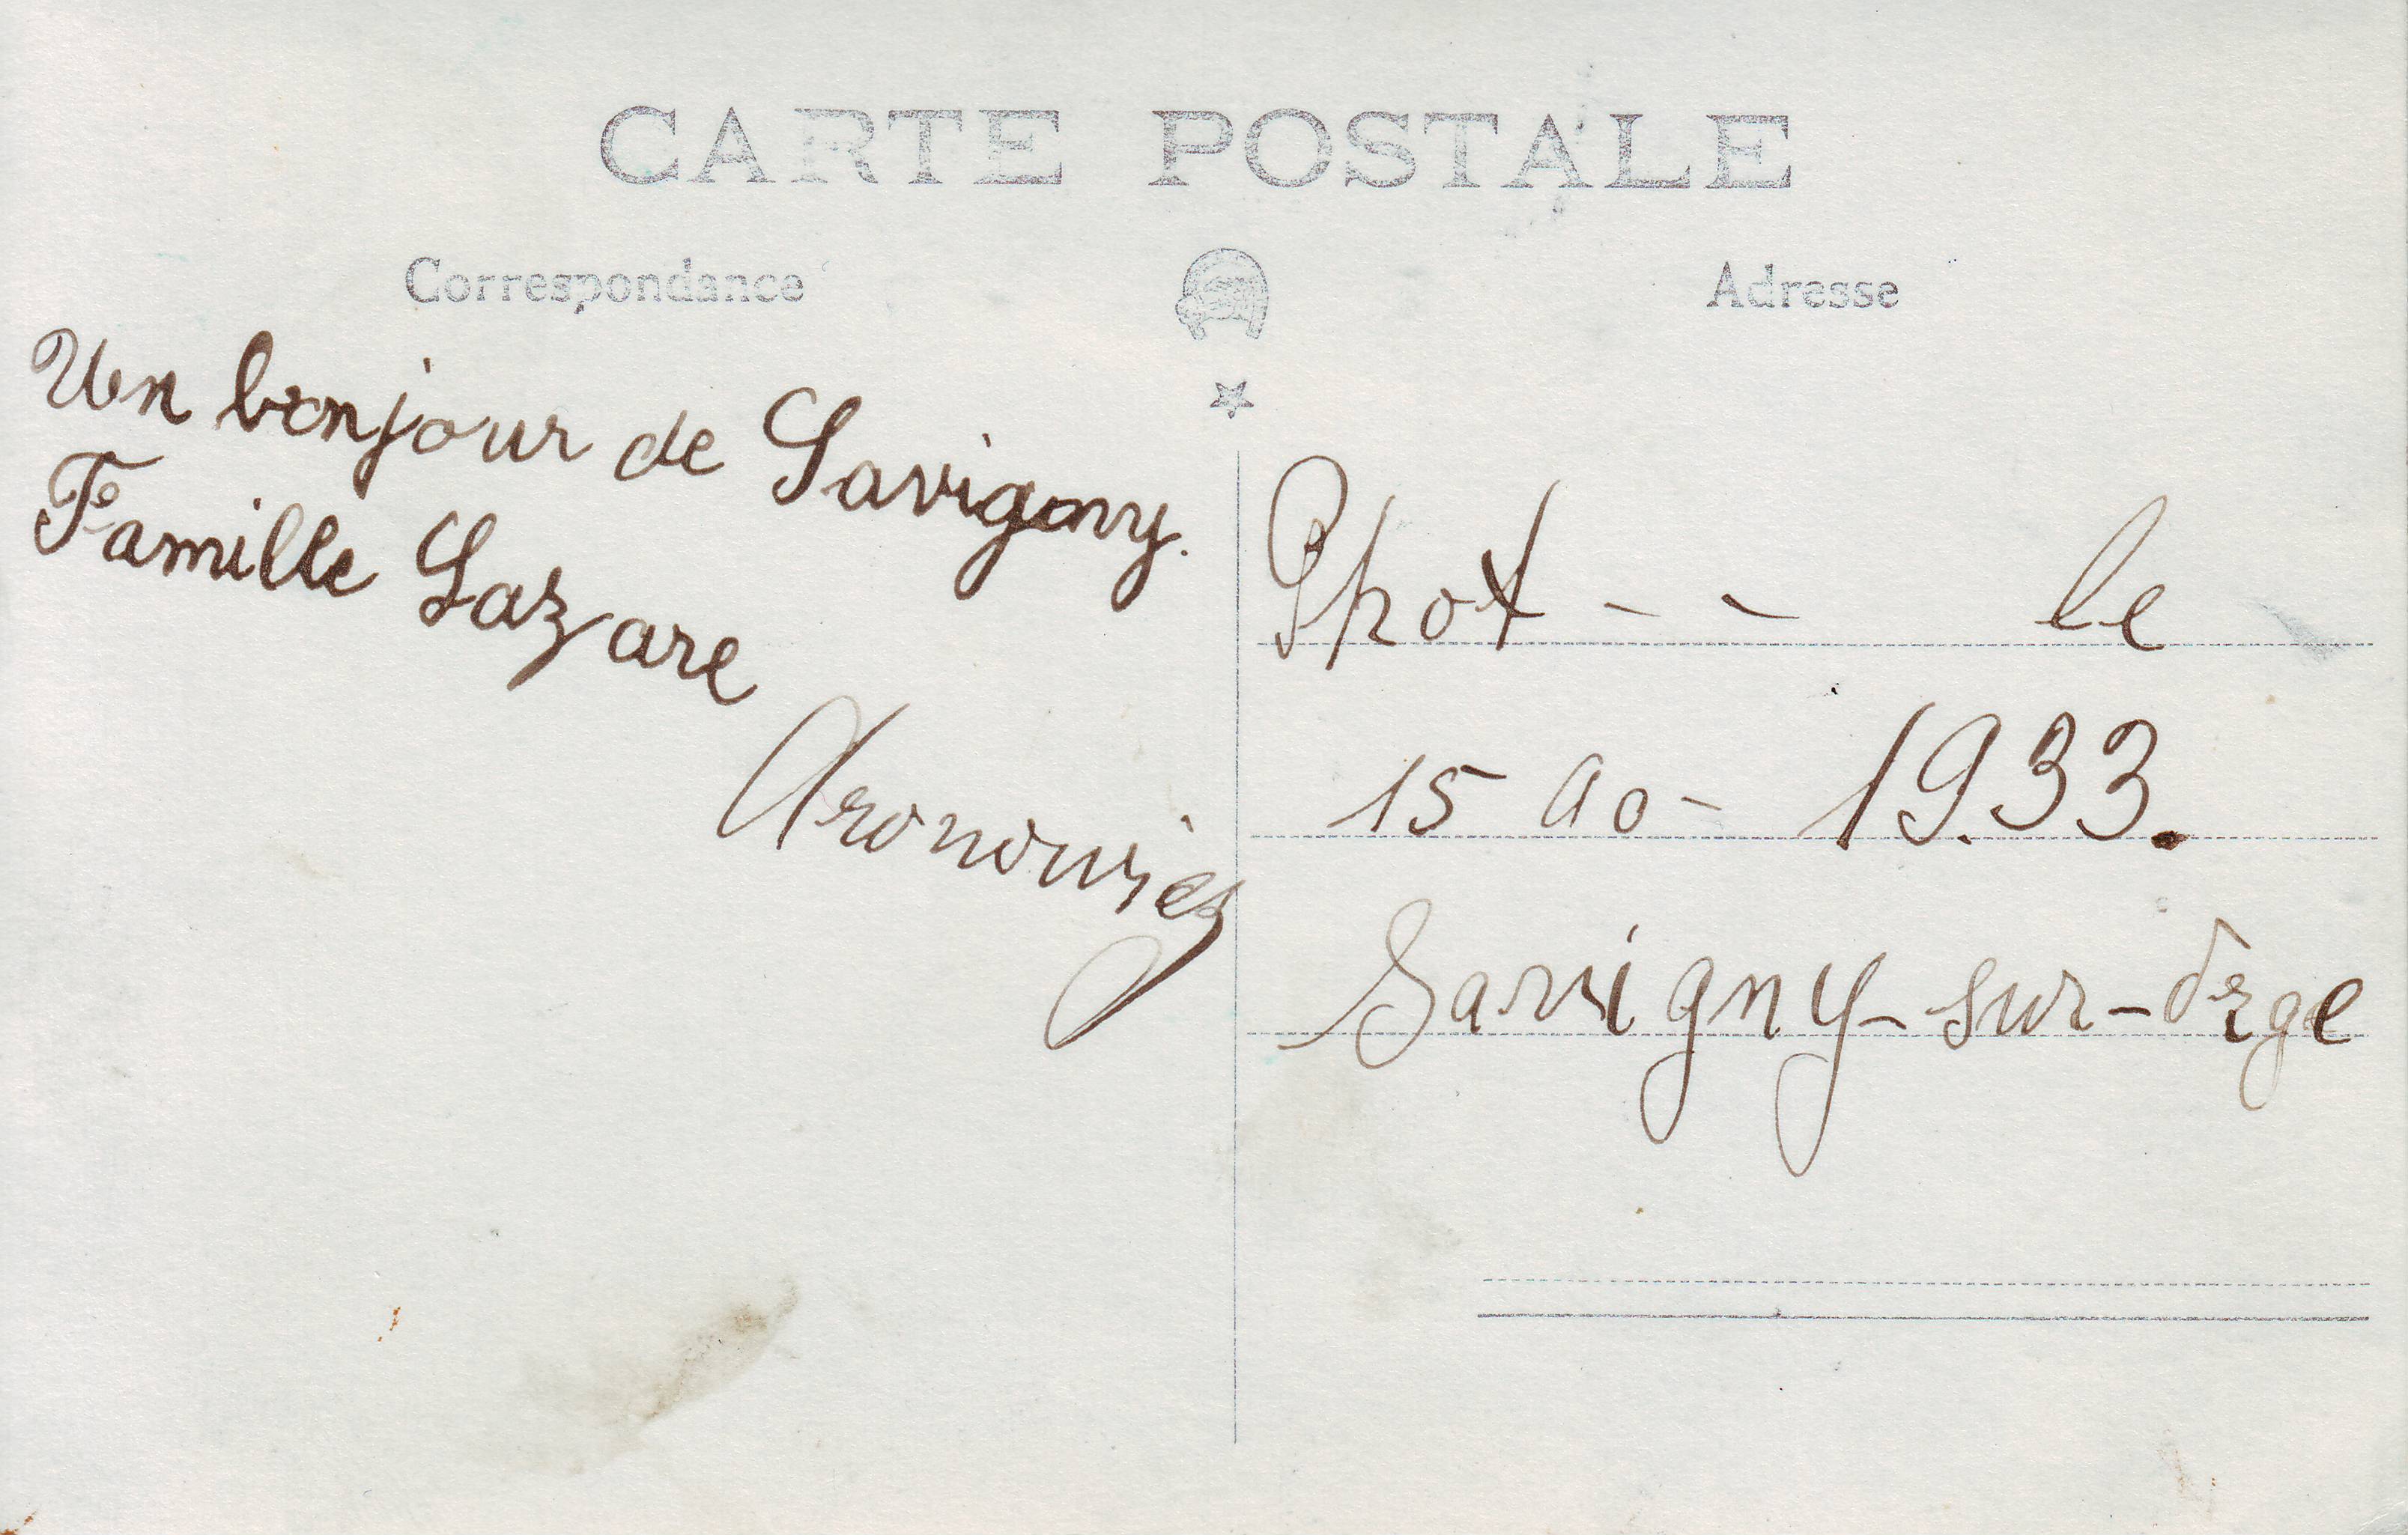 CARTE POSTALE
Correspondance
Adresse
Un bonjour de Savigny.
Famille Lazare
Aronowicz
Phot - - le
15 ao - 1933.
Savigny-sur-Orge